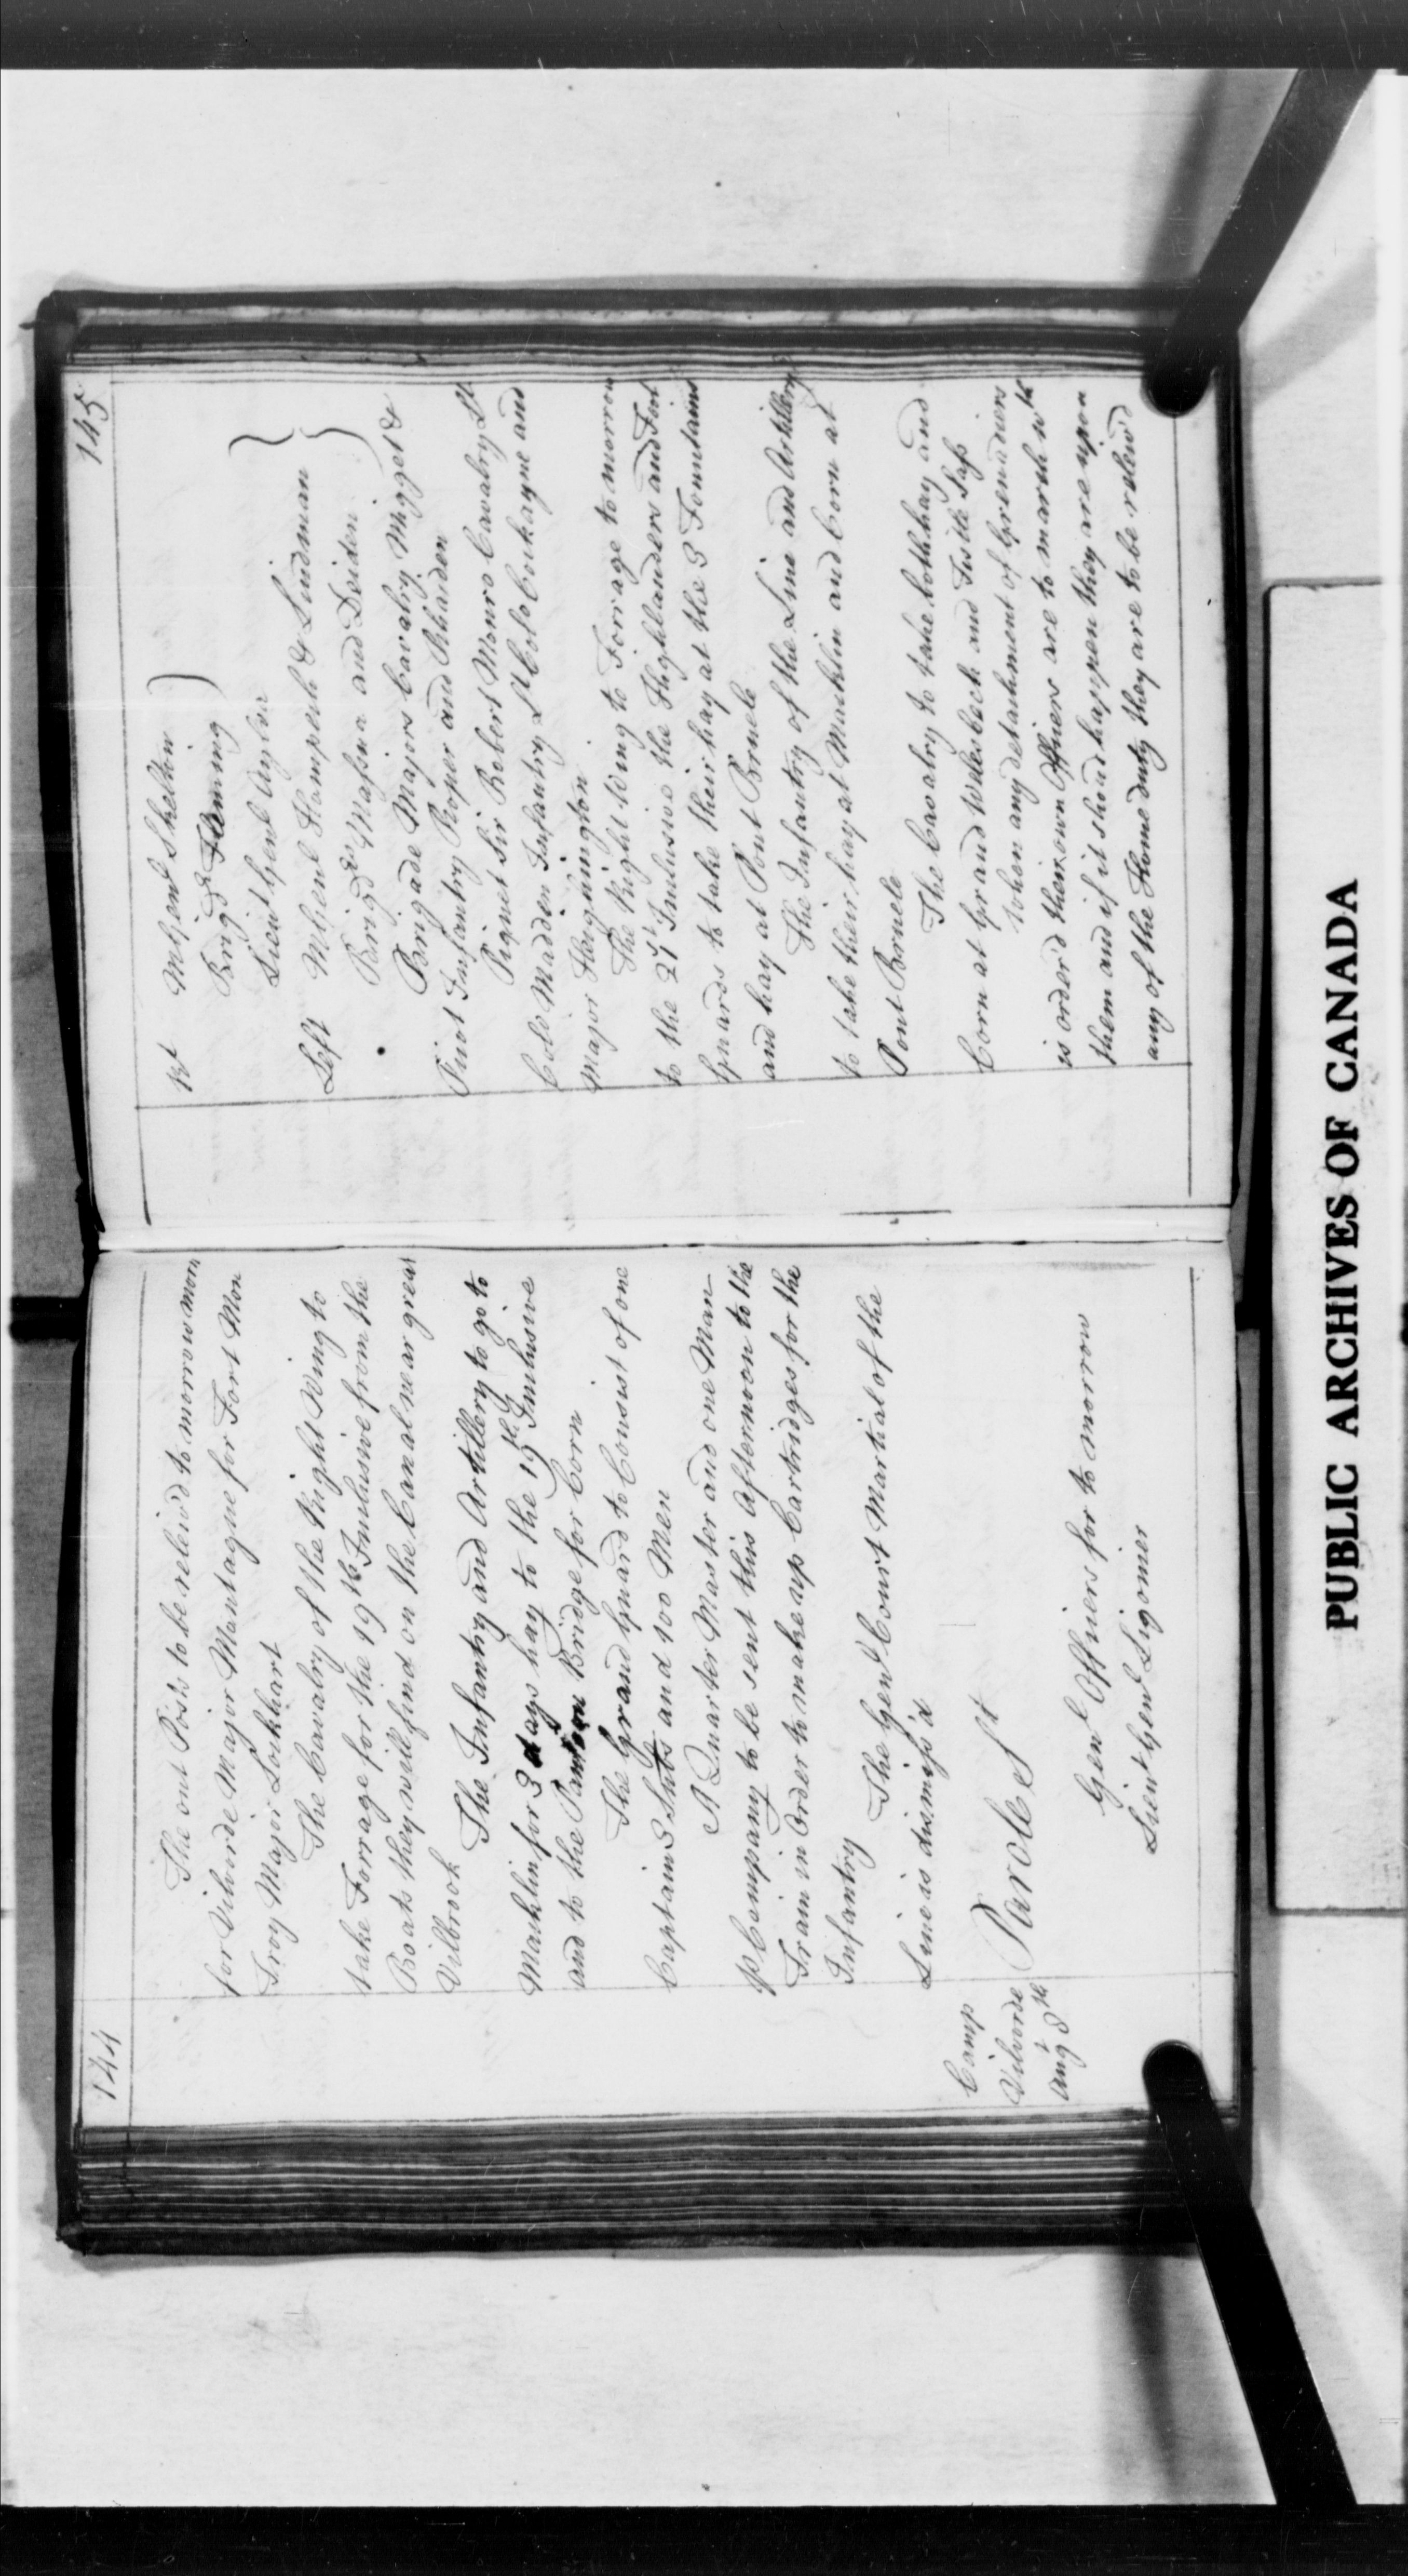 144
The out Posts to be releiv'd to morrow morn
for Vilvorde Major Montague for Fort Mon
Troy Major Lockhart
The Cavalry of the Right Wing to
take Forrage for the 19th Inclusive from the
Boats they will find on the Canal near great
Vilbrook
The Infantry and Artillery to go to
Macklin for 3 days hay to the 19th Inclusive
and to the Bridge for Corn
The Grand Guard to Consist of one
Captain 3 Subs and 100 Men
A Quarter Master and one Man
p Company to be sent this afternoon to the
Train in Order to make up Cartridges for the
Infantry
The Genl Court Martial of the
Line is dismiss'd
Camp
Vilvorde
Augt 8th
Parole St
Genl Officers for to morrow
Lieut Genl Ligonier
145
Rt MGenl Skelton
Brigd Fleming
Lieut Genl
Left MGenl Hompech & Lindman
Brigdrs and Deiden
Brigade Majors Cavalry Migget &
Pivot Infantry Roper and Richarden
Piquet Sir Robert Monro Cavalry Lt
Colo Madden Infantry Lt Colo Cockayne and
Major Heighington
The Right Wing to Forrage to morrow
to the 21st Inclusive the Highlanders and Foot
Guards to take their hay at the 3 Fountains
and hay at Pont Brucle
The Infantry of the Line and Artillery
to take their hay at Macklin and Corn at
Pont Brucle
The Cavalry to take both hay and
Corn at Gr and
When any detachment of Grenadiers
is order'd their own Officers are to march wth
them and if it shoud happen they are upon
any of the Home duty they are to be releiv'd
PUBLIC ARCHIVES OF CANADA